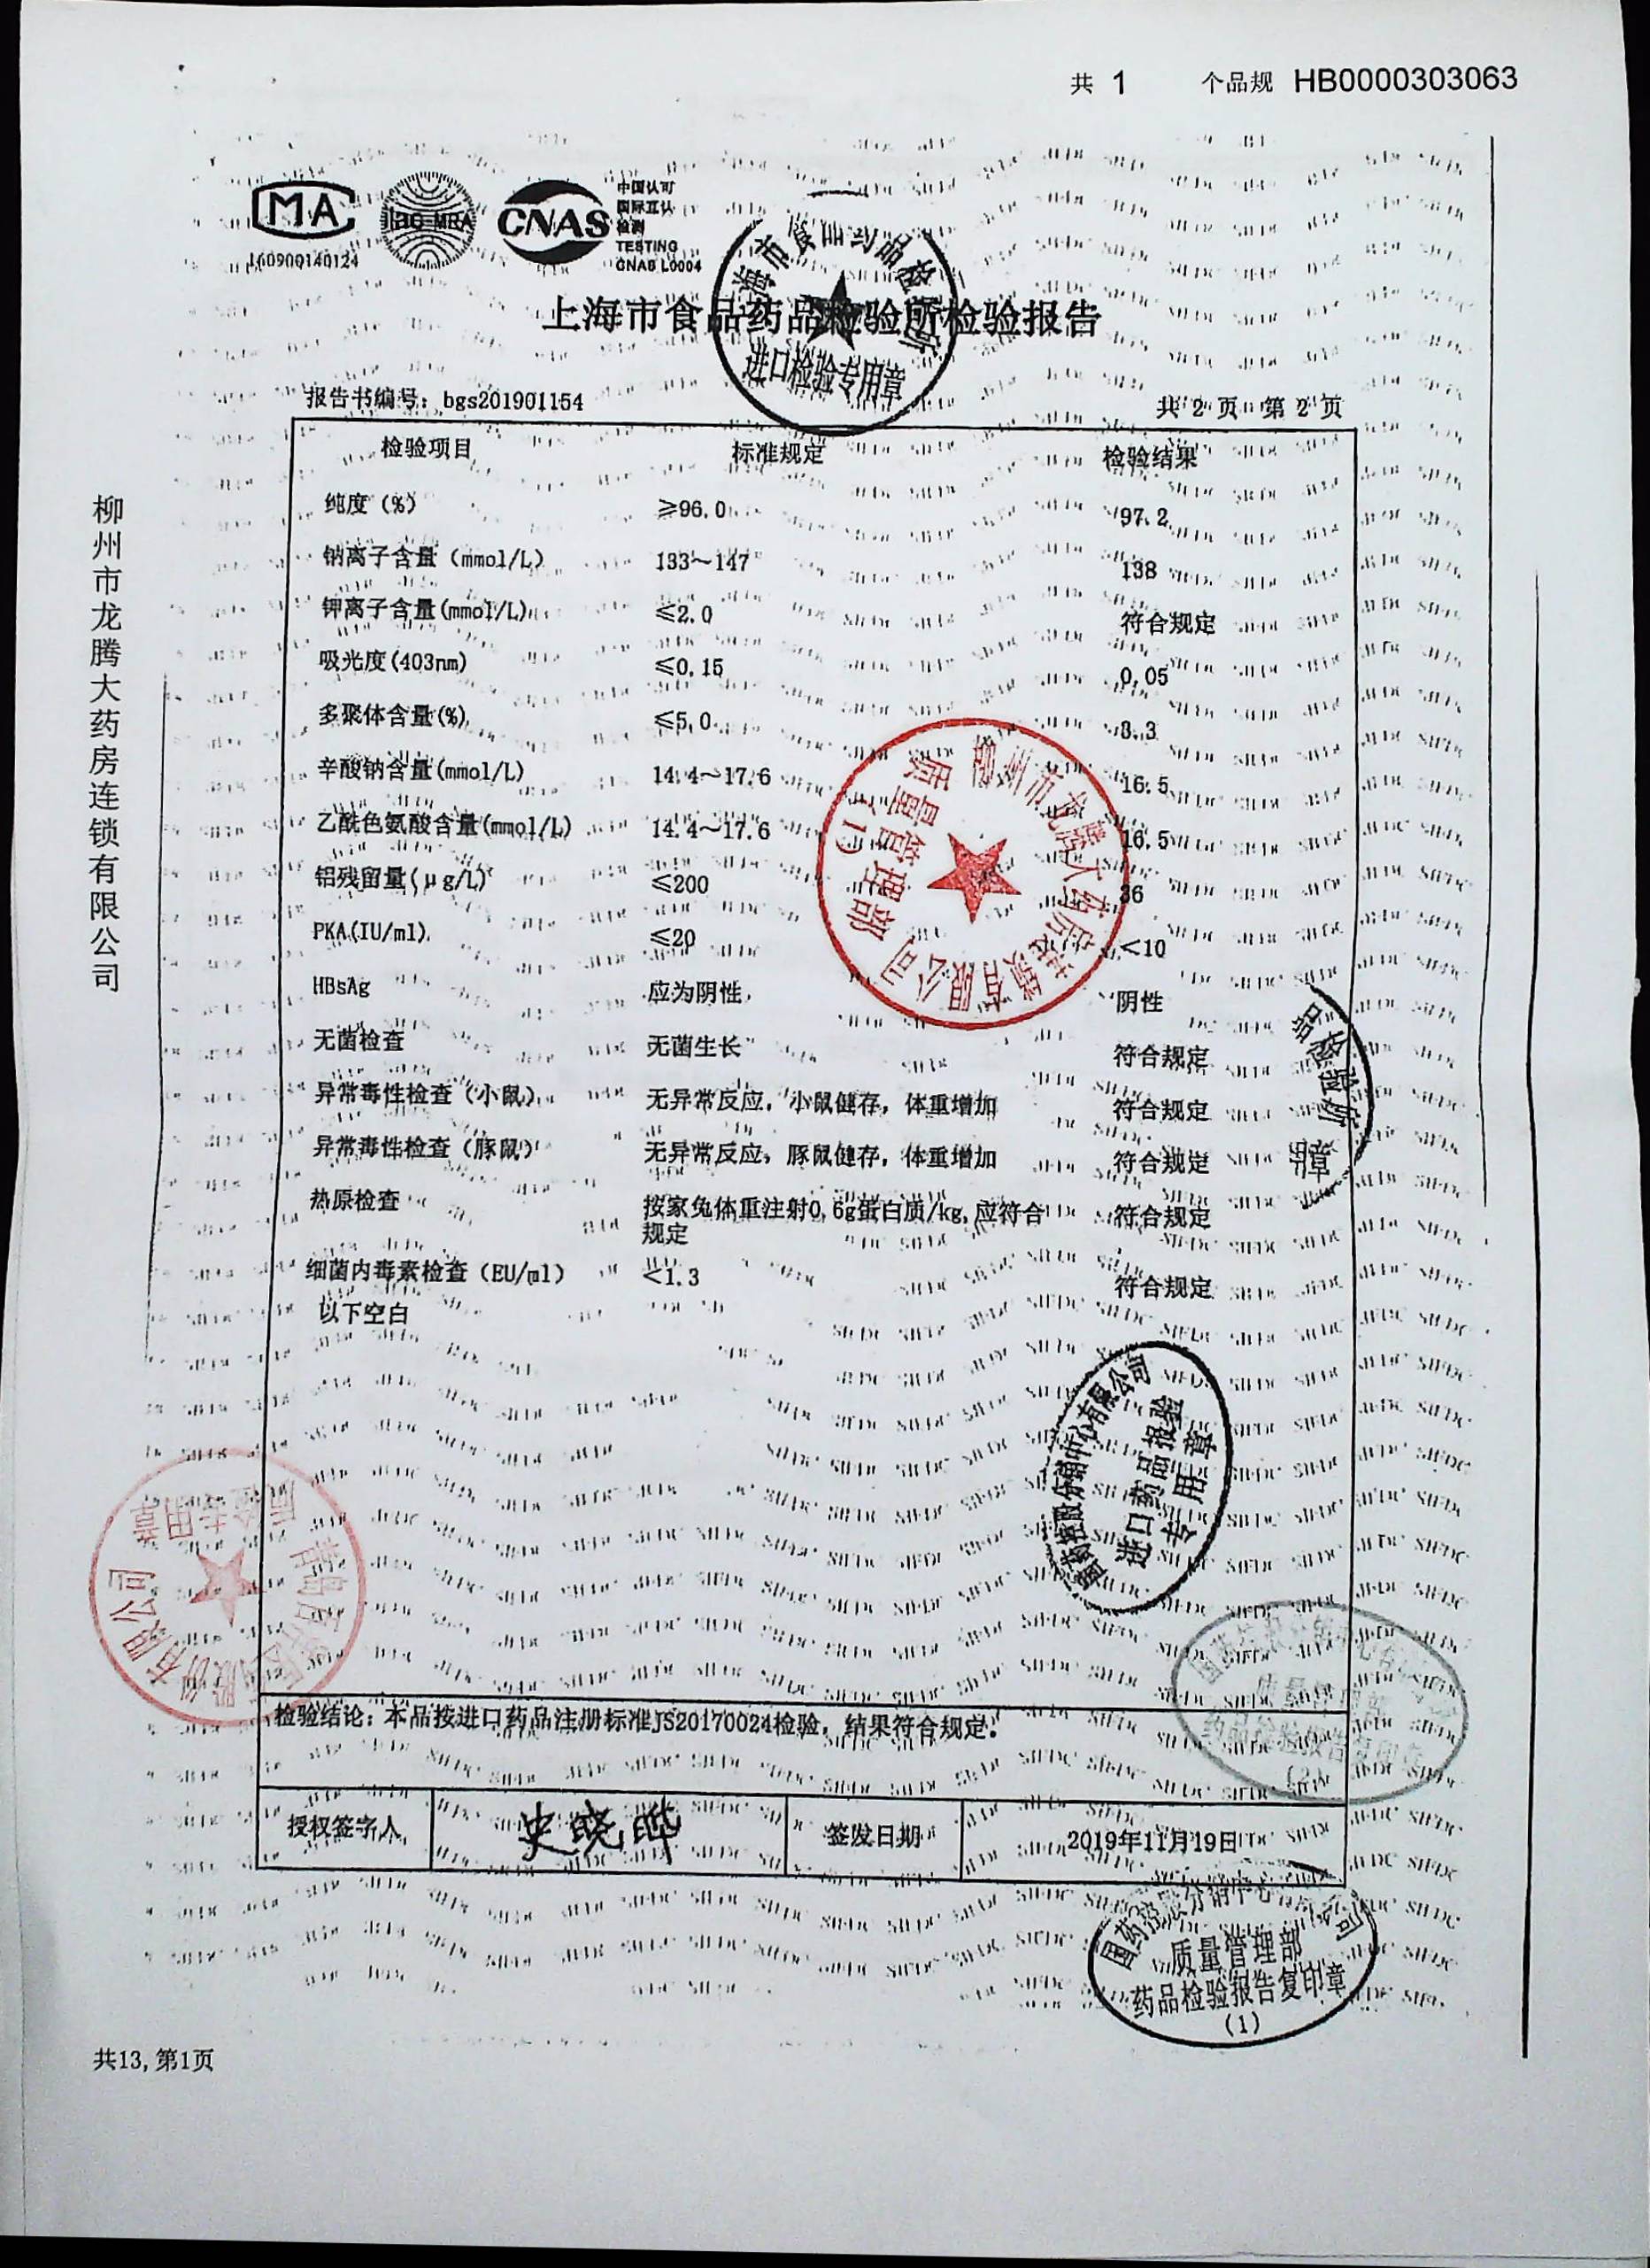 共 1 个品规 HB0000303063
MA
160900140124
ilac-MRA
CNAS
中国认可
国际互认
检测
TESTING
CNAS L0004
上海市食品药品检验所检验报告
进口检验专用章
报告书编号：bgs201901154
共 2 页 第 2 页
检验项目 标准规定 检验结果
纯度（%） ≥96.0 97.2
钠离子含量（mmol/L） 133～147 138
钾离子含量(mmol/L) ≤2.0 符合规定
吸光度(403nm) ≤0.15 0.05
多聚体含量(%) ≤5.0 3.3
辛酸钠含量(mmol/L) 14.4～17.6 16.5
乙酰色氨酸含量(mmol/L) 14.4～17.6 16.5
铝残留量(μg/L) ≤200 36
PKA(IU/ml) ≤20 <10
HBsAg 应为阴性 阴性
无菌检查 无菌生长 符合规定
异常毒性检查（小鼠） 无异常反应，小鼠健存，体重增加 符合规定
异常毒性检查（豚鼠） 无异常反应，豚鼠健存，体重增加 符合规定
热原检查 按家兔体重注射0.6g蛋白质/kg,应符合 符合规定
规定
细菌内毒素检查（EU/ml） <1.3 符合规定
以下空白
柳州市龙腾大药房连锁有限公司
柳州市龙腾大药房连锁有限公司
质量管理部
(1)
进口药品报验
专用章
检验结论：本品按进口药品注册标准JS20170024检验，结果符合规定。
授权签字人 史晓晔 签发日期 2019年11月19日
国药控股分销中心有限公司
质量管理部
药品检验报告复印章
(1)
共13,第1页